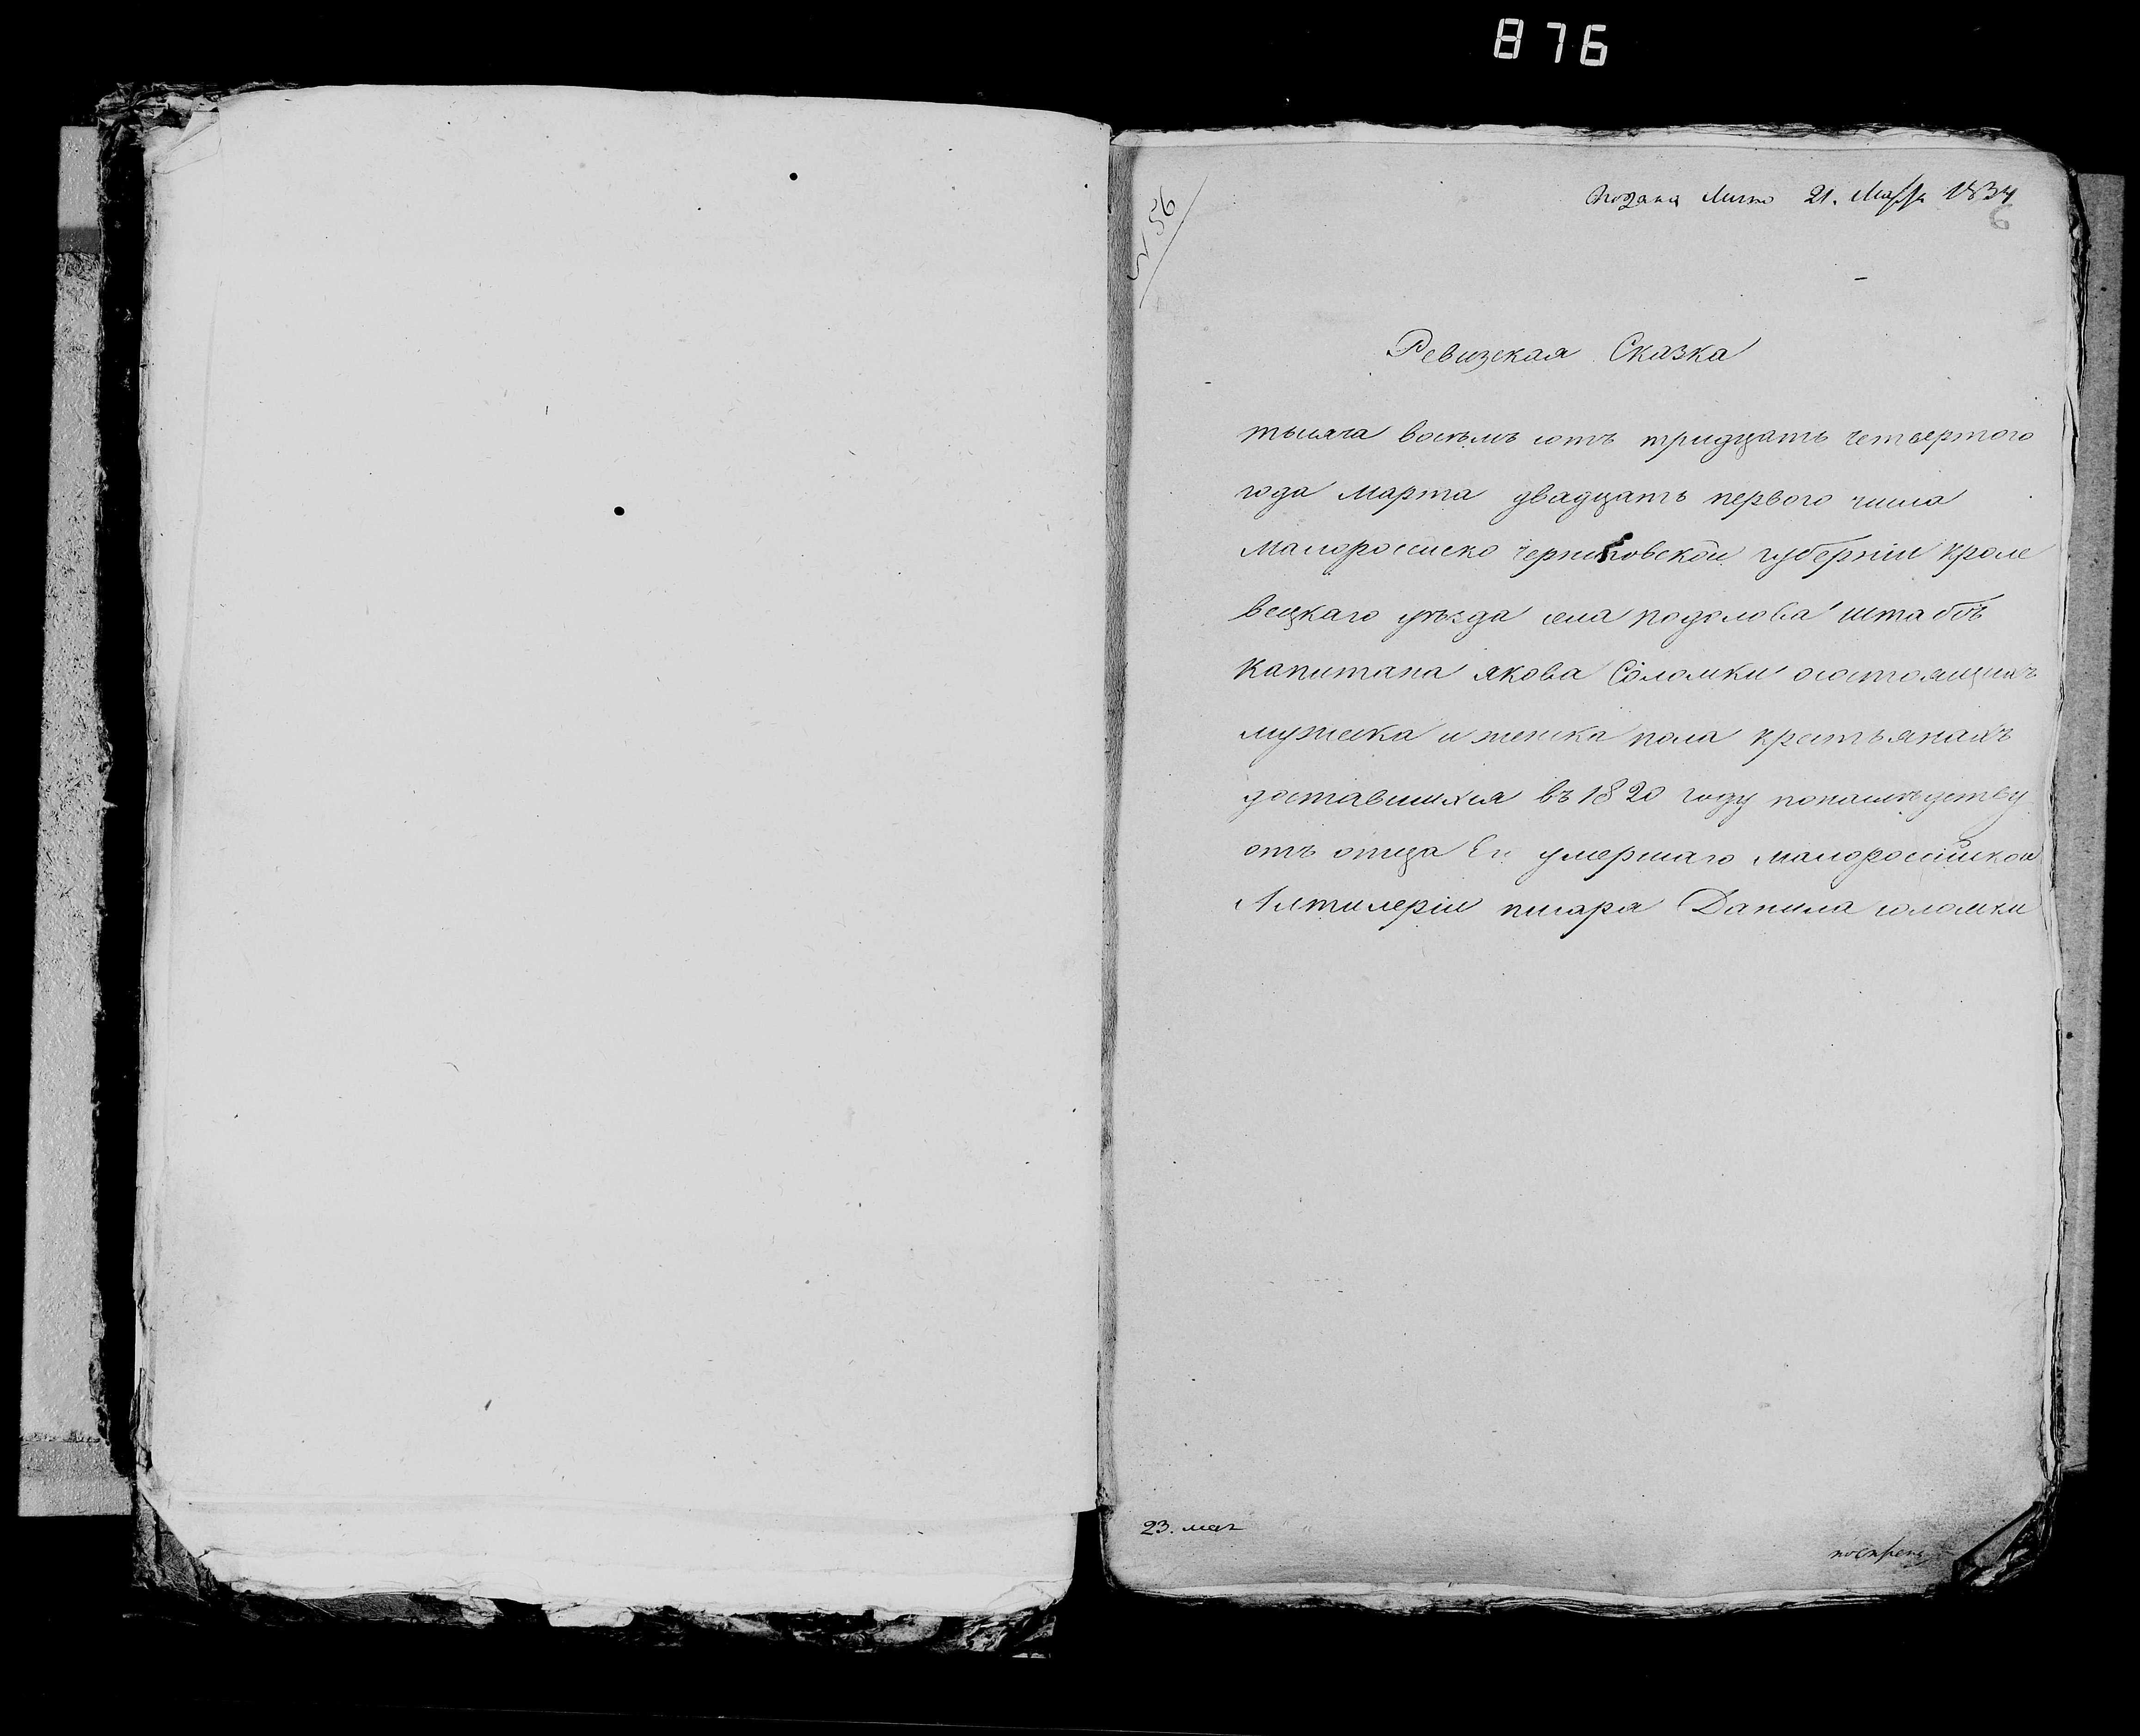 876
N 56
Подана лично 21. Марта 1834
6
Ревизская Сказка
тысяча восемь сотъ тридцать четвертого
года марта двадцать первого числа
Малоросииско черниговской губерніи Кроле
вецкаго уѣзда села подолова штабъ
Капитана якова Соломки осостоящихъ
мужеска и женска пола крестьянахъ
доставшихся въ 1820 году понаслѣдству
отъ отца Его умершаго малоросійской
Алтилеріи писаря Данила соломки
23. мар